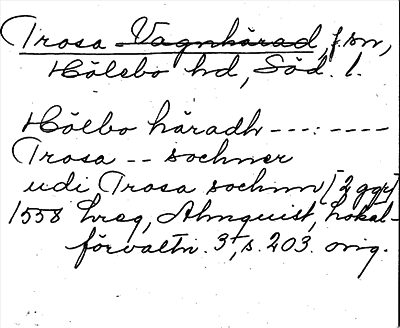 Trosa Vagnhärad, f.sn,
Hölebo hd, Söd. l.
Hölbo häradh ---:----
Trosa -- sochner
udi Trosa sochnn [2 ggr]
1558 Lreg, Almquist, Lokal-
förvaltn. 3, s. 203. orig.